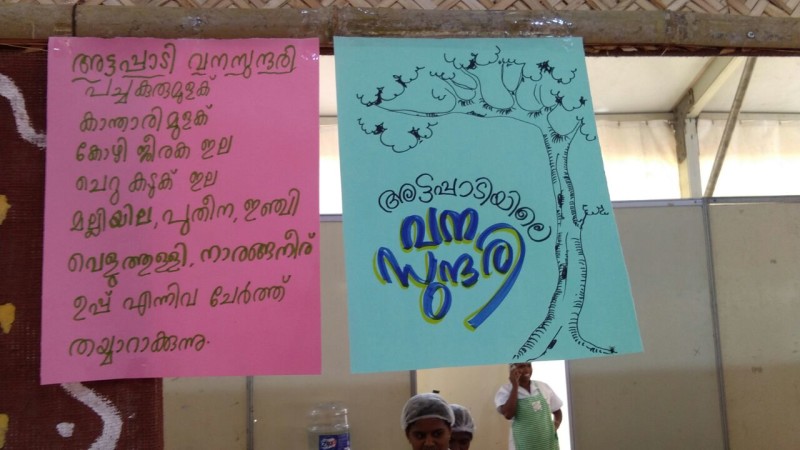 അട്ടപ്പാടി വനസുന്ദരി
പച്ച കുരുമുളക്
കാന്താരിമുളക്
കോഴി ജീരക ഇല
ചെറു കടുക് ഇല
മല്ലിയില, പുതീന, ഇഞ്ചി
വെളുത്തുള്ളി, നാരങ്ങനീര്
ഉപ്പ് എന്നിവ ചേർത്ത്
തയ്യാറാക്കുന്നു.
അട്ടപ്പാടിയിലെ
വന
സുന്ദരി